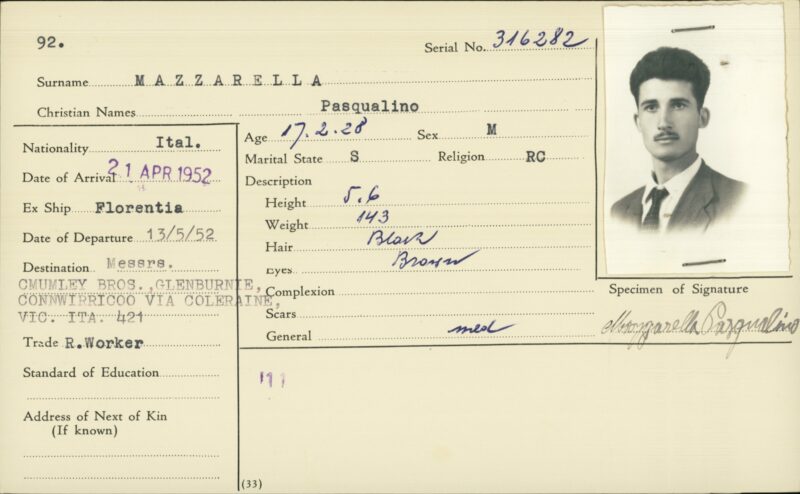 92.
Serial No. 316282
Surname MAZZARELLA
Christian Names Pasqualino
Nationality Ital.
Date of Arrival 21 APR 1952
Ex Ship Florentia
Date of Departure 13/5/52
Destination Messrs.
CMUMLEY BROS.,GLENBURNIE,
CONNWIRRICOO VIA COLERAINE,
VIC. ITA. 421
Trade R.Worker
Standard of Education
Address of Next of Kin
(If known)
Age 17.2.28 Sex M
Marital State S Religion RC
Description
Height 5.6
Weight 143
Hair Black
Eyes Brown
Complexion
Scars
General med
(33)
Specimen of Signature
Mazzarella Pasqualino